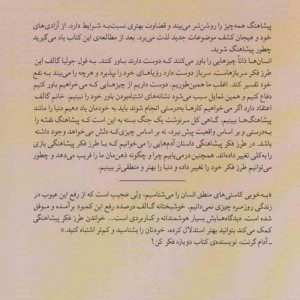 پیشاهنگ همه‌چیز را روشن‌تر می‌بیند و قضاوت بهتری نسبت‌به شرایط دارد. از آزادی‌های
خود و هیجان کشف موضوعات جدید لذت می‌برد. بعد از مطالعه‌ی این کتاب یاد می‌گیرید
چطور پیشاهنگ شوید.
انسان‌ها ذاتاً چیزهایی را باور می‌کنند که دوست دارند باور کنند. به قول جولیا گالف این
طرز فکر سربازهاست. سرباز دوست دارد رویاهای خود را بپذیرد و هرچه را می‌بیند به نفع
خود تفسیر کند. اغلب ما همین‌طوریم. دوست داریم از چیزهایی که می‌خواهیم باور کنیم
دفاع کنیم و همین تمایل سبب می‌شود نشانه‌های اشتباه‌بودن باور خود را نبینیم. خانم گالف
اعتقاد دارد اگر می‌خواهیم کارها به‌درستی انجام شوند باید به خودمان یاد دهیم دنیا را مانند
پیشاهنگ‌ها ببینیم. گاهی کل سرنوشت یک جنگ بسته به این است که پیشاهنگ نقشه را
به‌درستی و بر اساس واقعیت پیش ببرد، نه بر اساس چیزی که دلش می‌خواهد وجود داشته
باشد. در طرز فکر پیشاهنگی داستان آدم‌هایی را می‌خوانیم که با طرز فکر پیشاهنگی بازی
را به‌کلی تغییر داده‌اند. همچنین درمی‌یابیم چرا و چگونه ذهنمان ما را فریب می‌دهد و چطور
می‌توانیم طرز فکر خود را تغییر داده و دنیا را بهتر و منطقی‌تر ببینیم.
«به‌خوبی کاستی‌های منطق انسان را می‌شناسیم، ولی عجیب است که از رفع این عیوب در
زندگی روزمره چیزی نمی‌دانیم. خوشبختانه گالف درصدد رفع این کمبود برآمده و موفق
شده است. دیدگاه‌هایش بسیار هوشمندانه و کاربردی است... خواندن طرز فکر پیشاهنگی
کمک می‌کند بتوانید بهتر استدلال کرده، خودتان را بشناسید و کم‌تر اشتباه کنید.»
ـ آدام گرنت، نویسنده‌ی کتاب دوباره فکر کن!